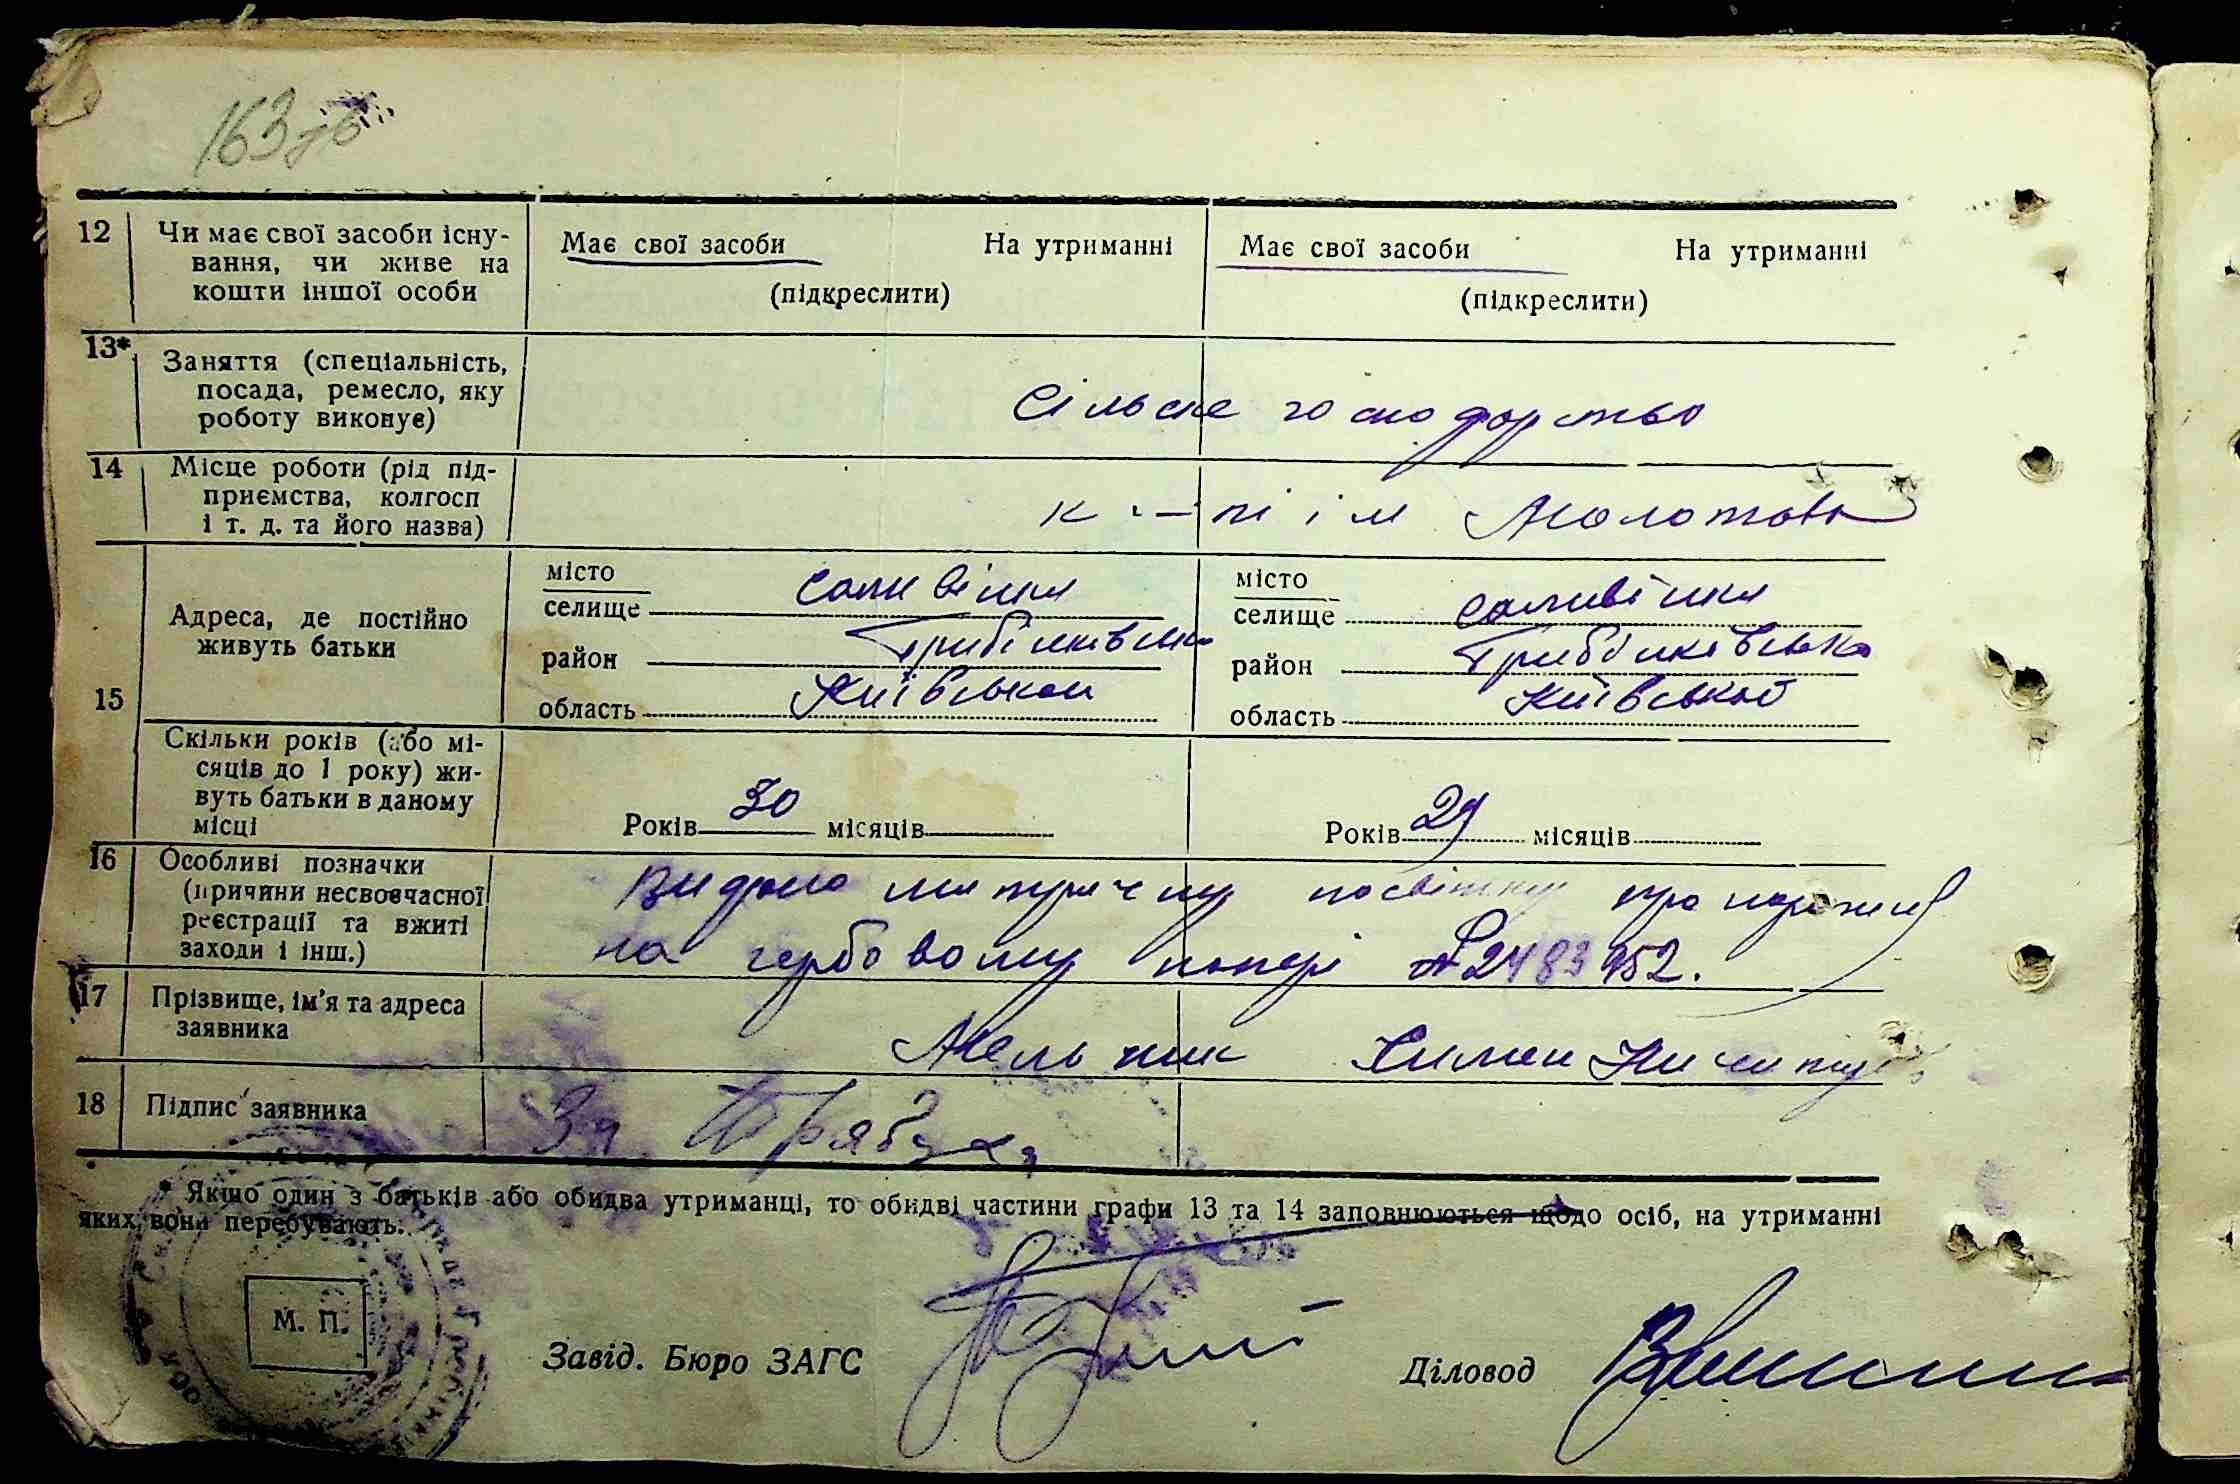 163
12 Чи має свої засоби існу-
вання, чи живе на
кошти іншої особи
Має свої засоби На утриманні
(підкреслити)
Має свої засоби На утриманні
(підкреслити)
13* Заняття (спеціальність,
посада, ремесло, яку
роботу виконує)
Сільске господарство
14 Місце роботи (рід під-
приємства, колгосп
і т. д. та його назва)
к-пі ім Молотова
15 Адреса, де постійно
живуть батьки
місто
селище Саливінки
район Гребінківськ
область Київської
місто
селище Саливінки
район Гребінківсько
область Київської
Скільки років (або мі-
сяців до 1 року) жи-
вуть батьки в даному
місці
Років 30 місяців
Років 29 місяців
16 Особливі позначки
(причини несвоєчасної
реєстрації та вжиті
заходи і інш.)
Видано матричну посвітку про народження
на гербовому папері № 2483952.
17 Прізвище, ім’я та адреса
заявника
Мельник
18 Підпис заявника
За
* Якщо один з батьків або обидва утриманці, то обидві частини графи 13 та 14 заповнюються щодо осіб, на утриманні
яких вони перебувають.
М. П.
Завід. Бюро ЗАГС
Діловод